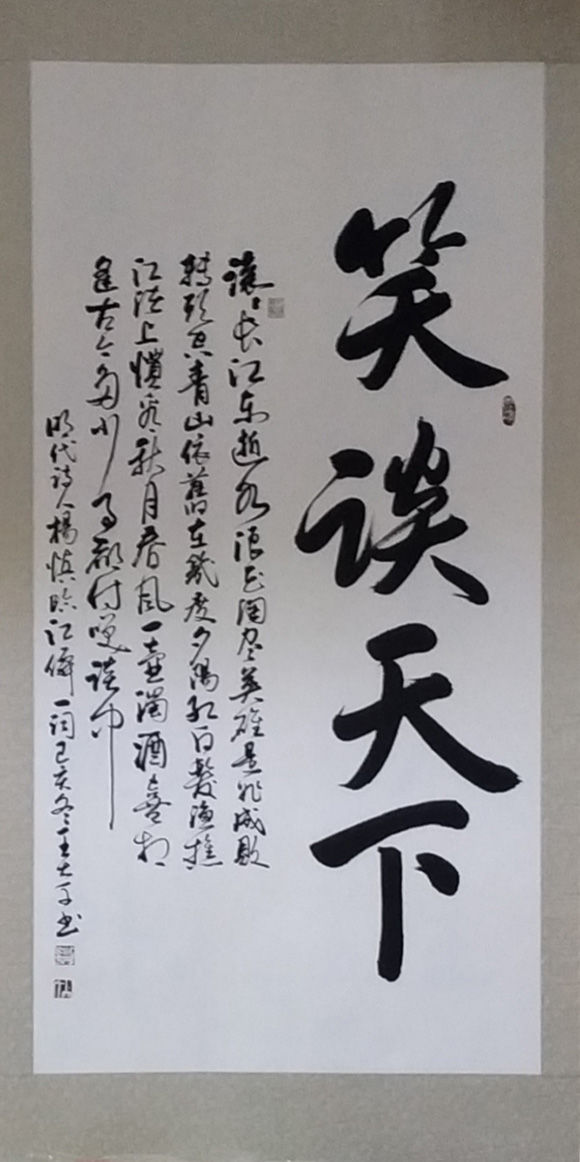 笑谈天下
滚滚长江东逝水浪花淘尽英雄是非成败
转头空青山依舊在几度夕陽红白髮渔樵
江渚上惯看秋月春风一壶濁酒喜相
逢古今多少事都付笑谈中
明代诗人楊慎临江仙一词己亥冬王大子书